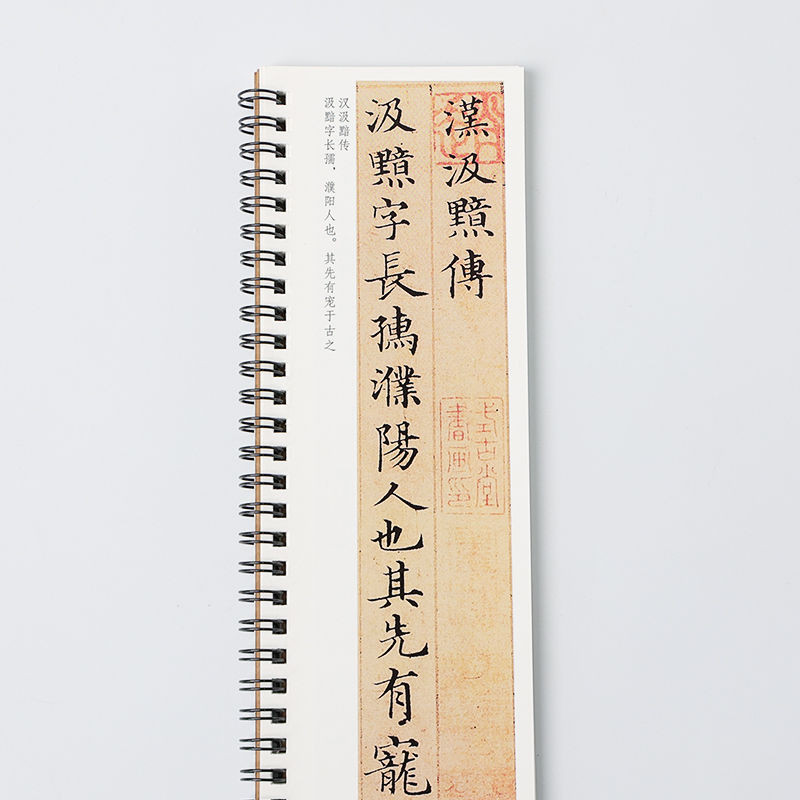 漢汲黯傳
汲黯字長孺濮陽人也其先有寵
式古堂書畫印
汉汲黯传
汲黯字长孺，濮阳人也。其先有宠于古之